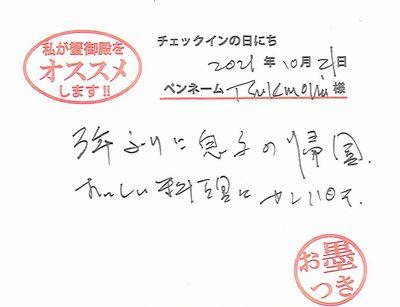 私が蟹御殿を
オススメ
します!!
チェックインの日にち
2021年10月21日
ペンネーム Tsukumoni 様
3年ぶりに息子の帰国.
おいしい料理にカンパイ.
お墨
つき